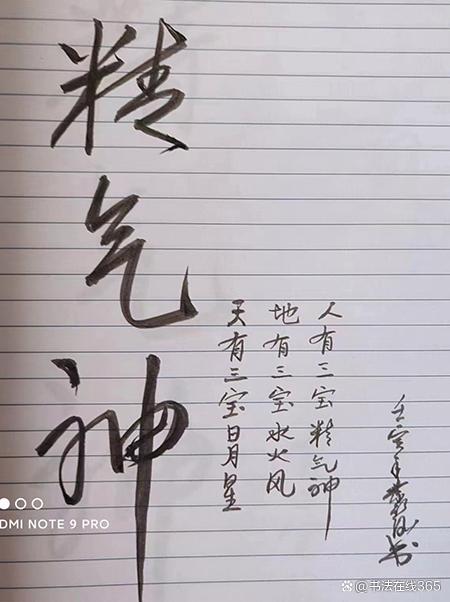 精气神
天有三宝日月星
地有三宝水火风
人有三宝精气神
壬寅年 书
DMI NOTE 9 PRO
@书法在线365